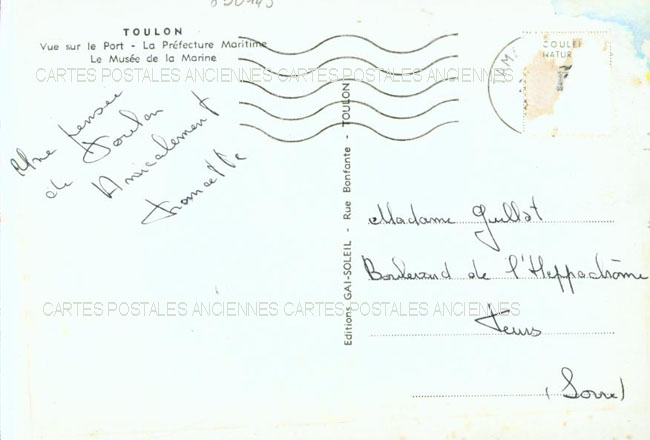 TOULON
Vue sur le Port - La Préfecture Maritime
Le Musée de la Marine
CARTES POSTALES ANCIENNES CARTES POSTALES ANCIENNES
COULEU
NATUR
Une pensée
de Toulon
Amicalement
Francette
Editions GAI-SOLEIL - Rue Bonfante - TOULON
Madame Guillot
Boulevard de l'Heppodrôme
CARTES POSTALES ANCIENNES CARTES POSTALES ANCIENNES
Feurs
(Loire)